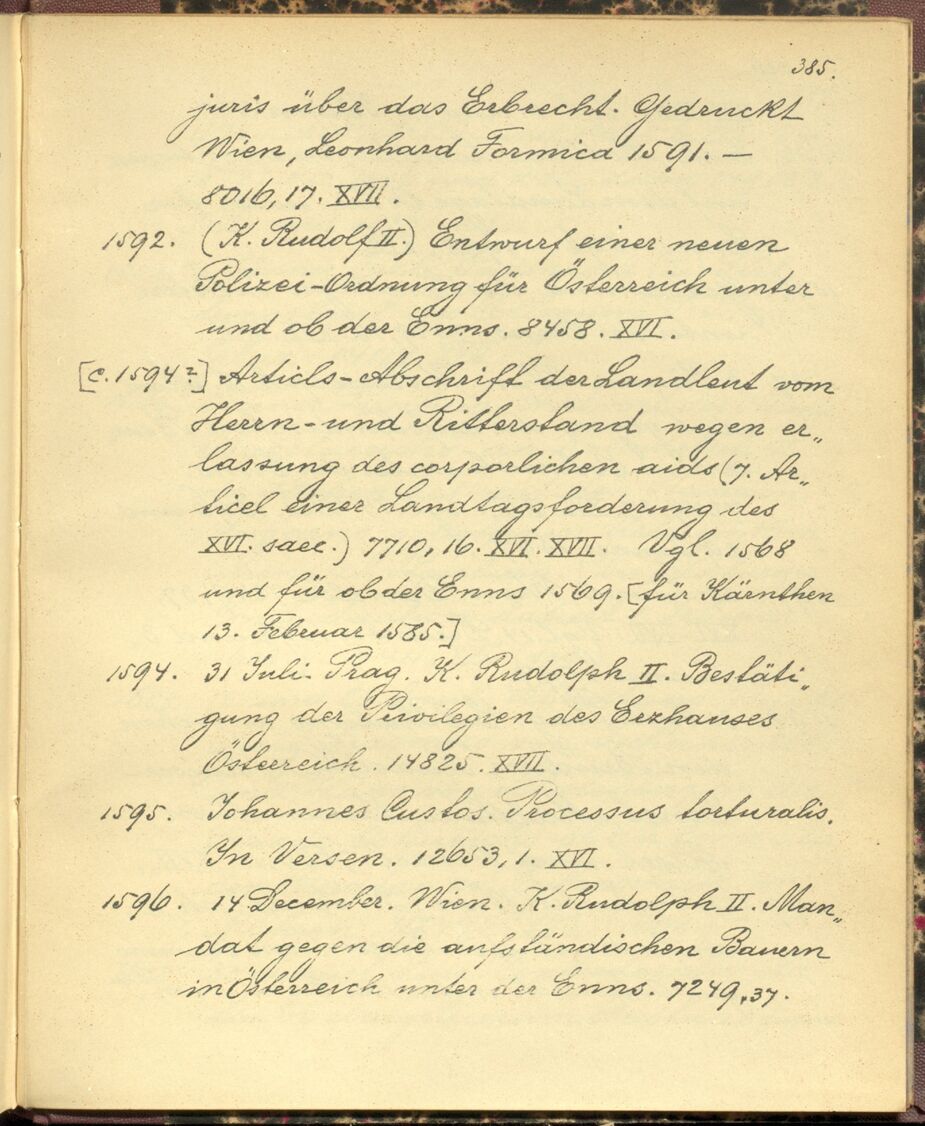 385.
juris über das Erbrecht. Gedruckt
Wien, Leonhard Formica 1591. —
8016, 17. XVII.
1592. (K. Rudolf II.) Entwurf einer neuen
Polizei-Ordnung für Österreich unter
und ob der Enns. 8458. XVI.
[c. 1594?] Articls-Abschrift der Landleut vom
Herrn- und Ritterstand wegen er„
lassung des corporlichen aids (7. Ar„
ticel einer Landtagsforderung des
XVI. saec.) 7710, 16. XVI. XVII. Vgl. 1568
und für ob der Enns 1569. [für Kärnthen
13. Februar 1585.]
1594. 31 Juli. Prag. K. Rudolph II. Bestäti„
gung der Privilegien des Erzhauses
Österreich. 14825. XVII.
1595. Johannes Custos. Processus torturalis.
In Versen. 12653, 1. XVI.
1596. 14 December. Wien. K. Rudolph II. Man„
dat gegen die aufständischen Bauern
in Österreich unter der Enns. 7249, 37.